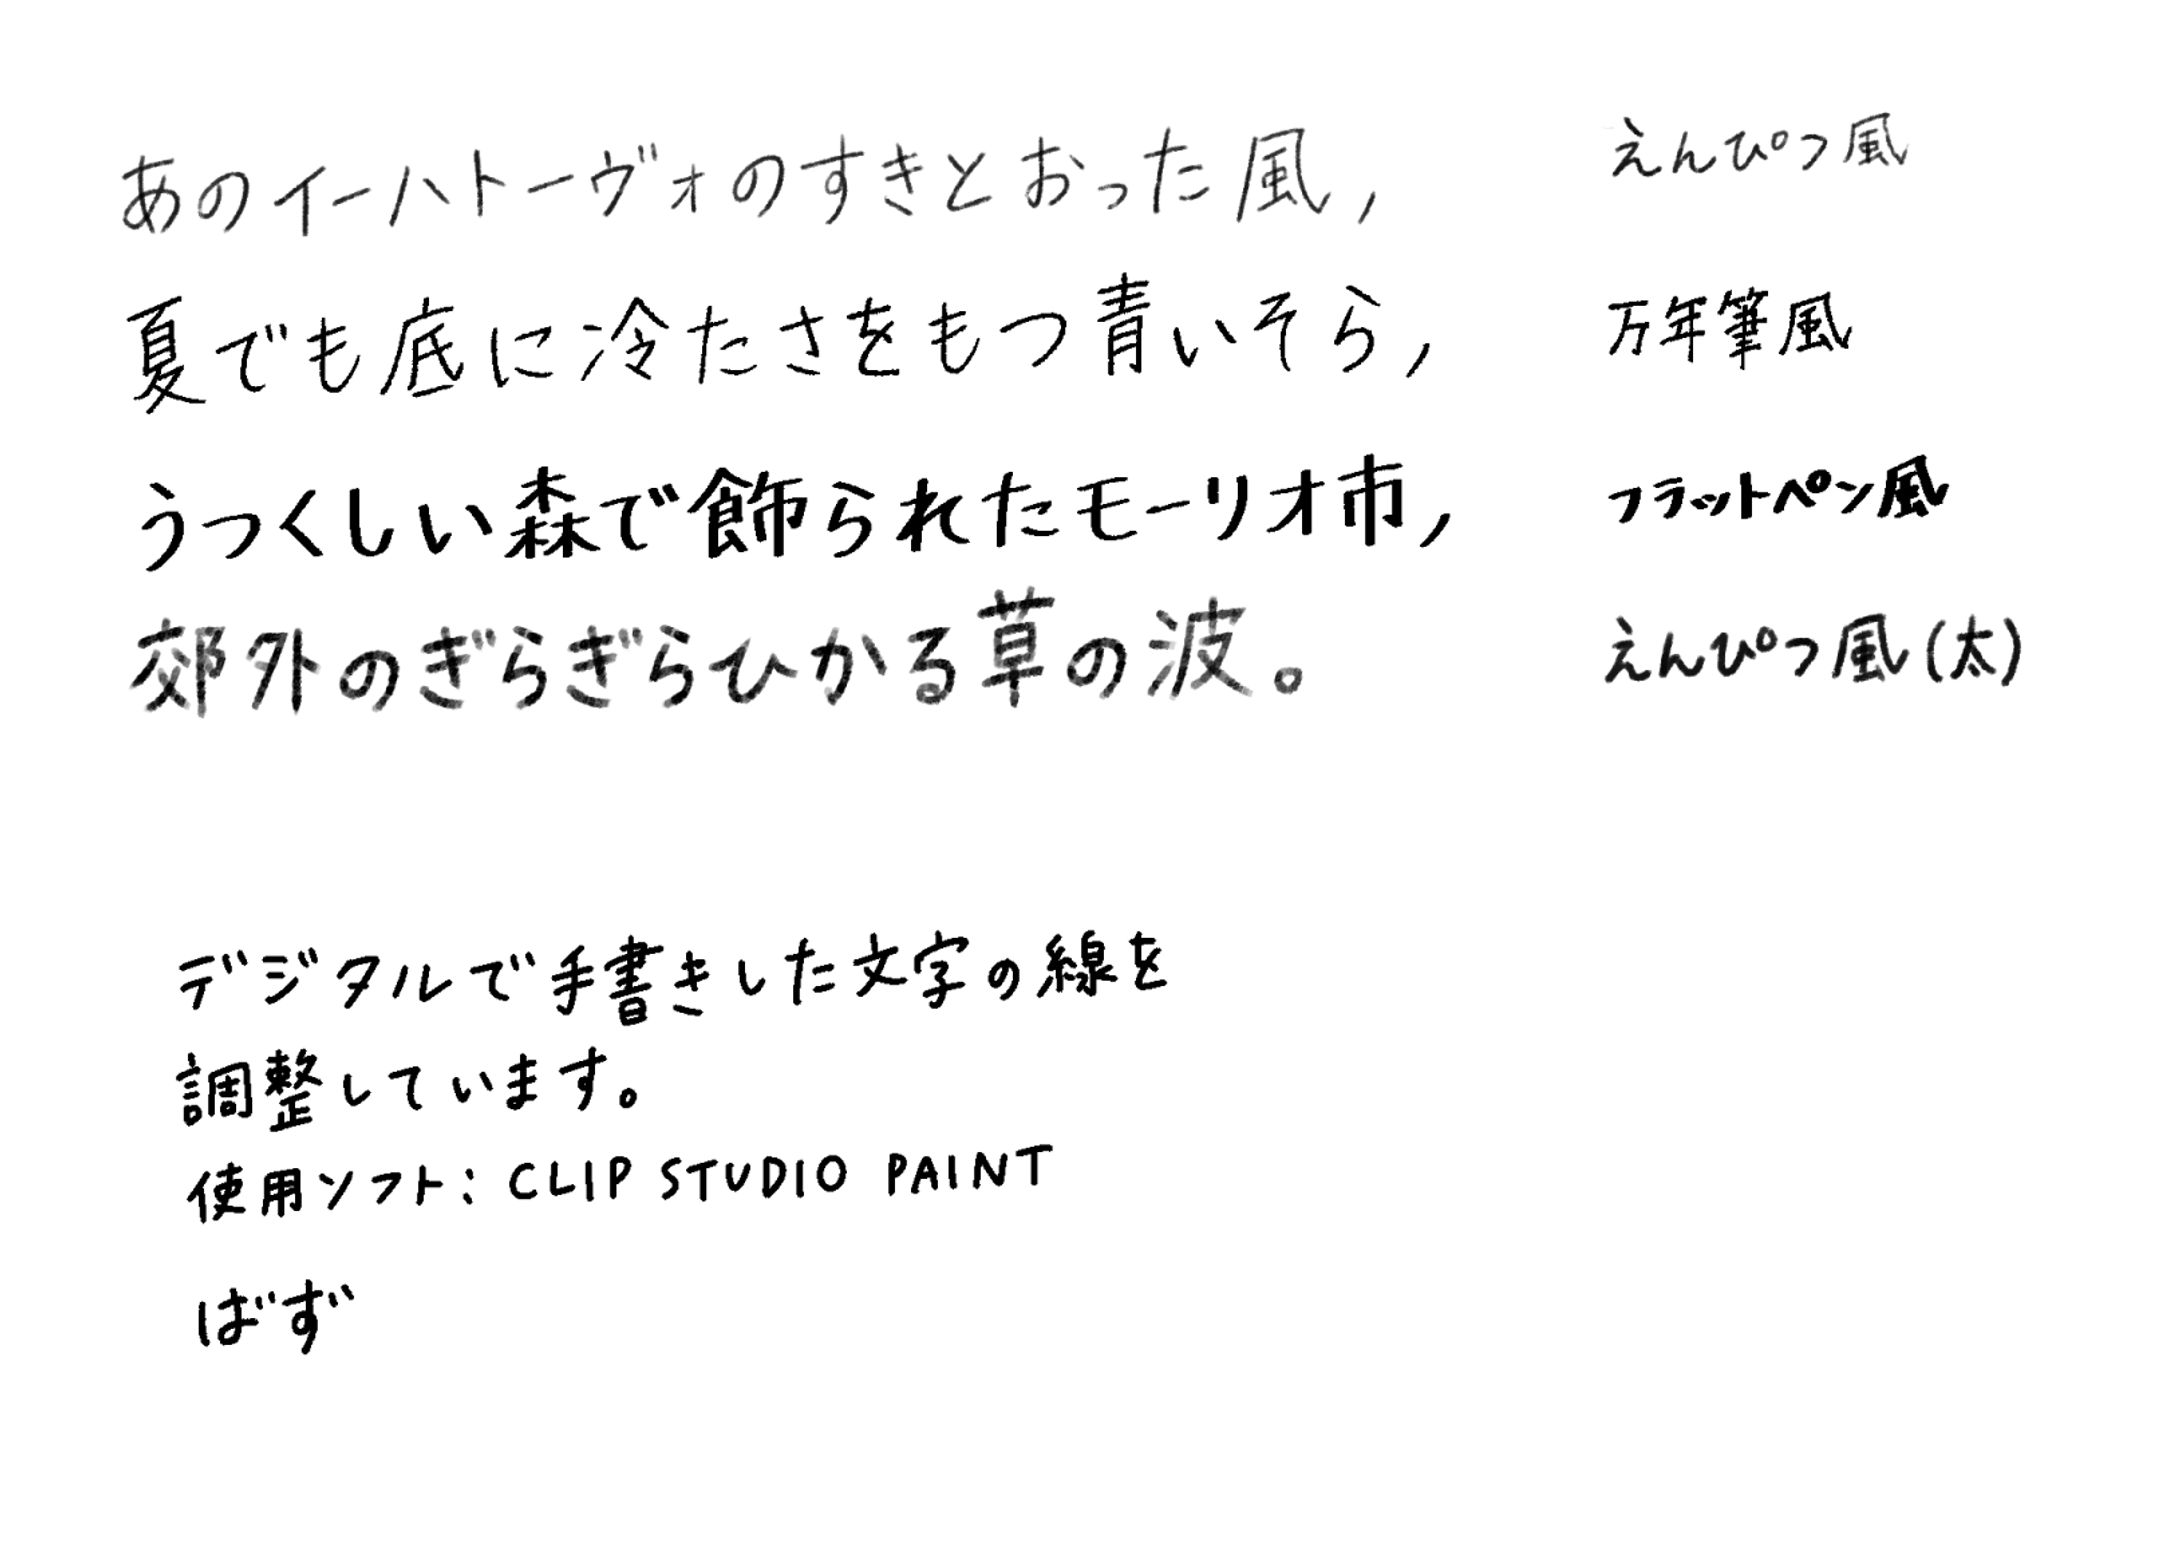 あのイーハトーヴォのすきとおった風,
えんぴつ風
夏でも底に冷たさをもつ青いそら,
万年筆風
うつくしい森で飾られたモーリオ市,
フラットペン風
郊外のぎらぎらひかる草の波。
えんぴつ風(太)
デジタルで手書きした文字の線を
調整しています。
使用ソフト: CLIP STUDIO PAINT
ばず